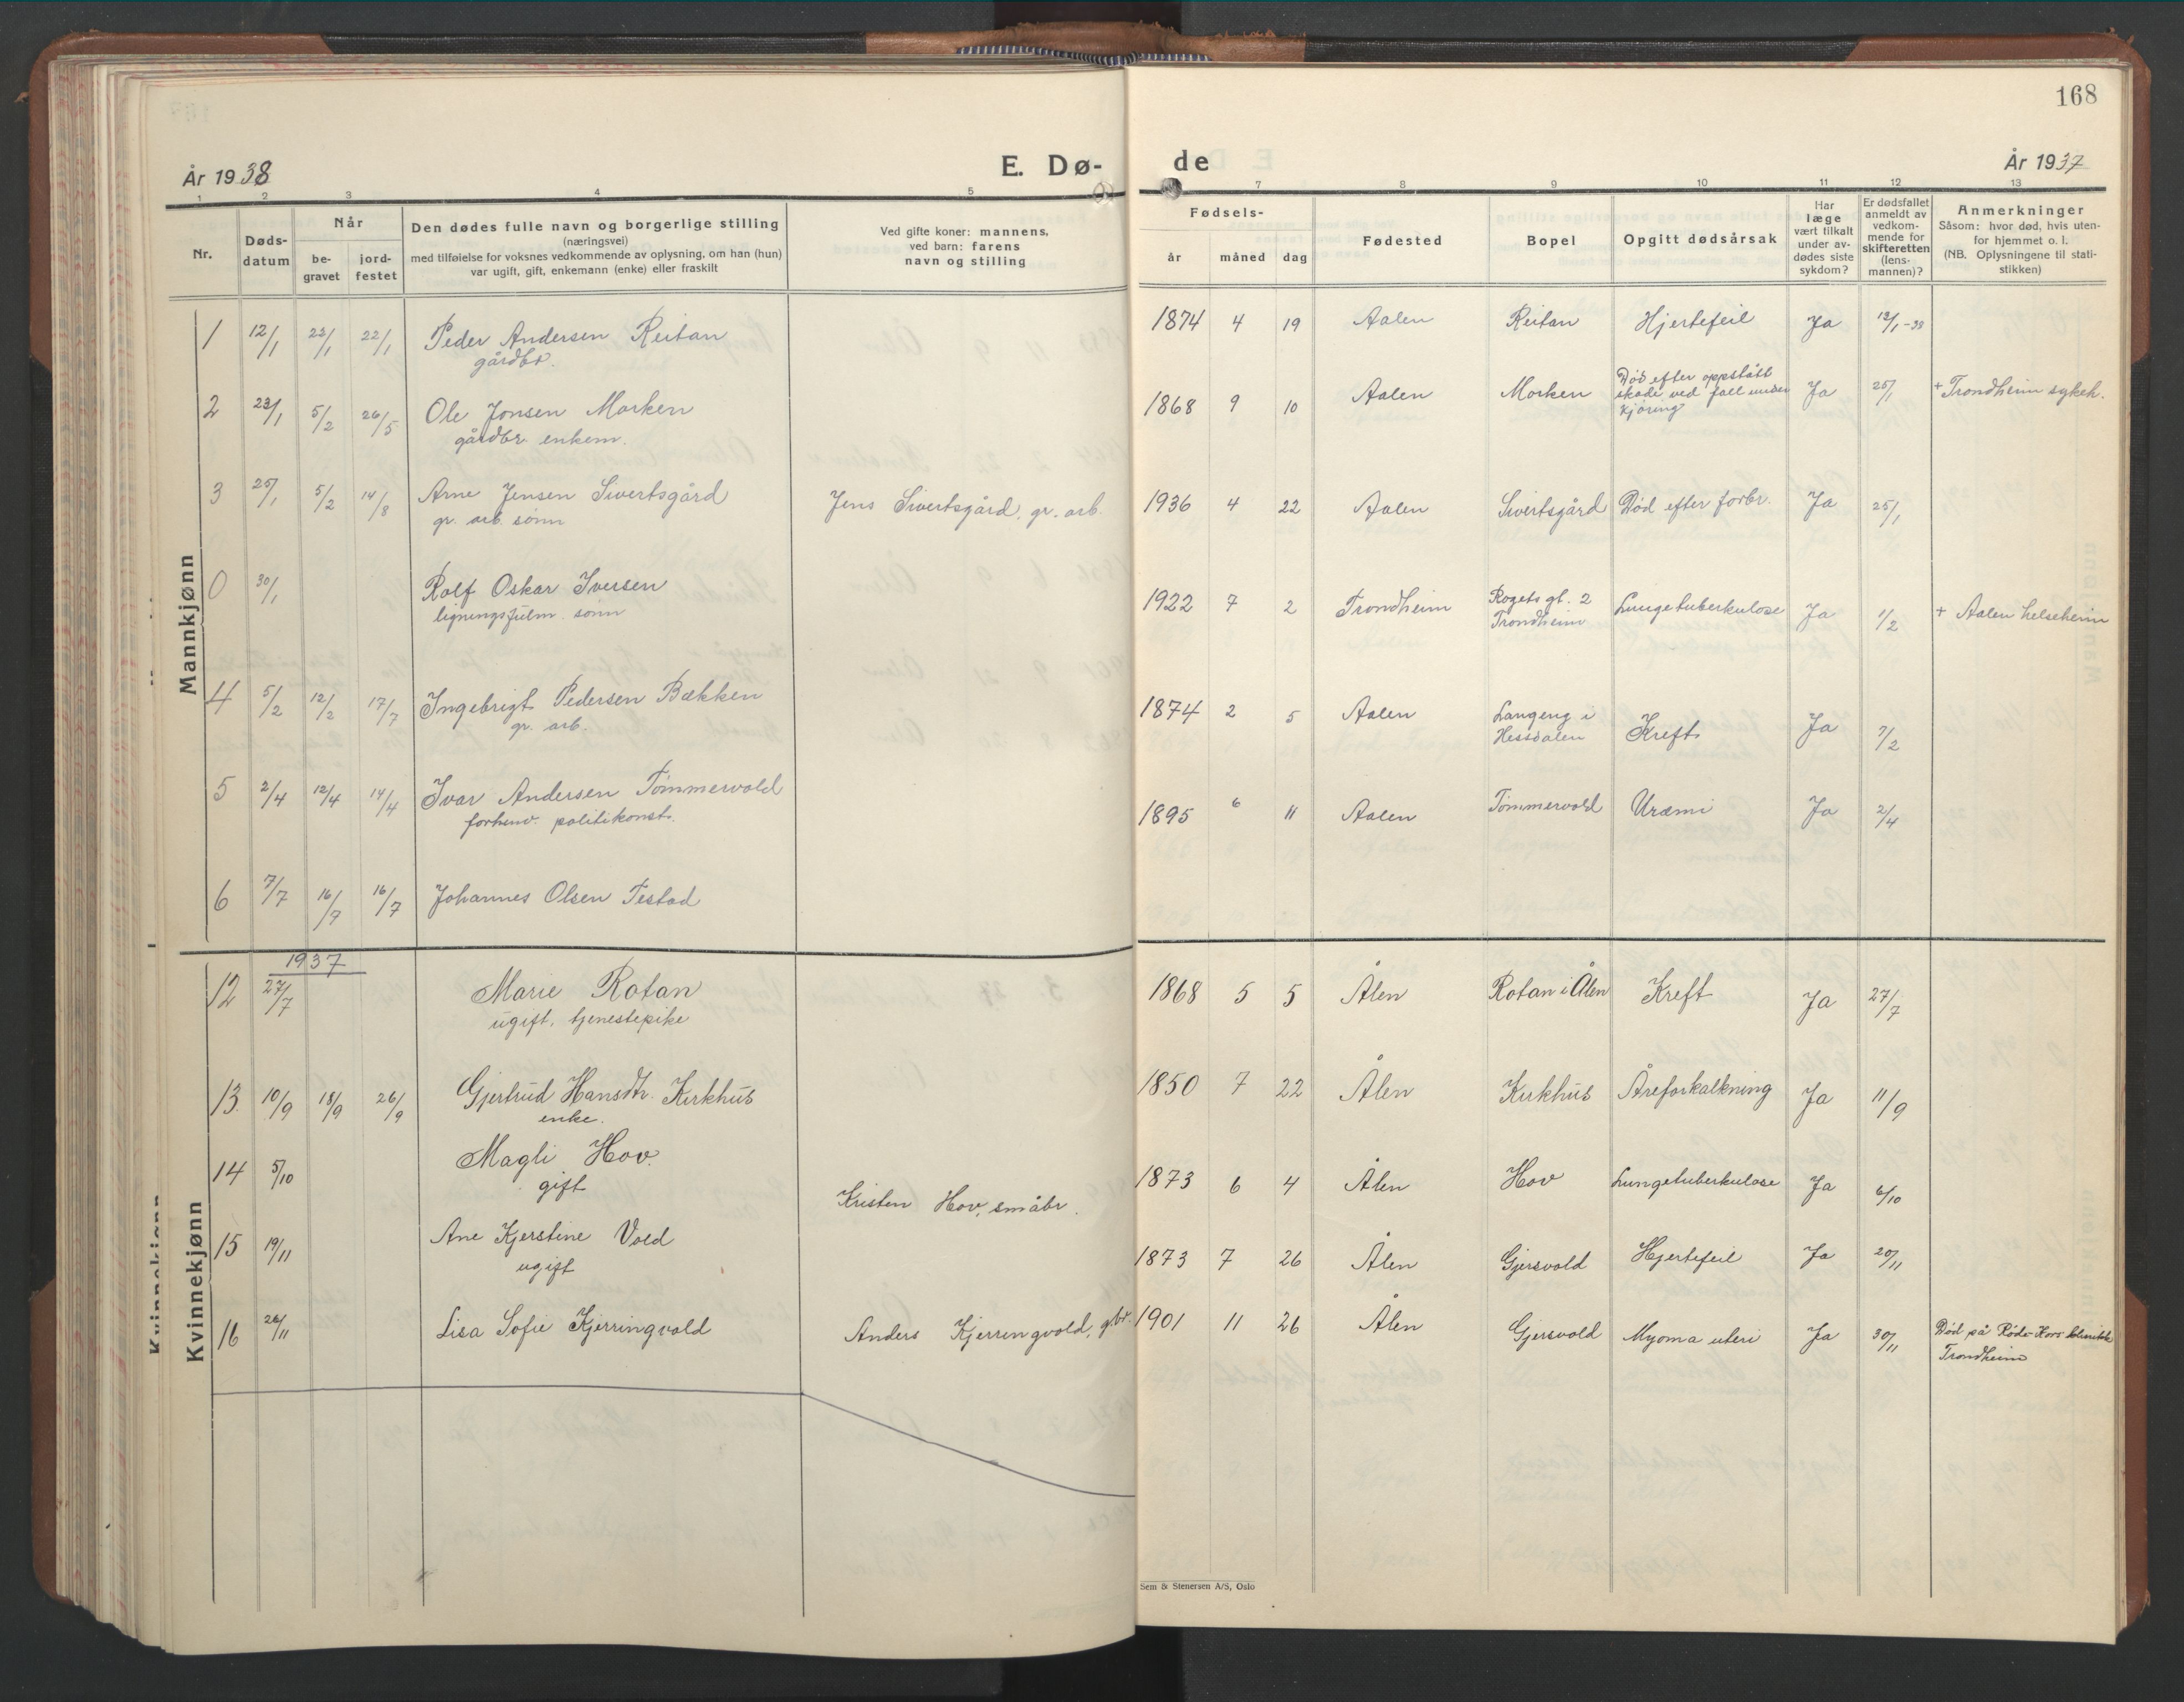 168
År 1938
E. Dø-
de
År 1937
1 2 3 4 5 7 8 9 10 11 12 13
Nr.
Døds-
datum
Når
be-
gravet
jord-
festet
Den dødes fulle navn og borgerlige stilling
(næringsvei)
med tilføielse for voksnes vedkommende av oplysning, om han (hun)
var ugift, gift, enkemann (enke) eller fraskilt
Ved gifte koner: mannens,
ved barn: farens
navn og stilling
Fødsels-
år måned dag
Fødested
Bopel
Opgitt dødsårsak
Har
læge
vært tilkalt
under av-
dødes siste
sykdom?
Er dødsfallet
anmeldt av
vedkom-
mende for
skifteretten
(lens-
mannen)?
Anmerkninger
Såsom: hvor død, hvis uten-
for hjemmet o. l.
(NB. Oplysningene til stati-
stikken)
Mannkjønn
1 12/1 22/1 22/1 Peder Andersen Reitan 1874 4 19 Aalen Reitan Hjertefeil Ja 12/1-38
gårdbr.
2 23/1 5/2 26/5 Ole Jonsen Morken 1868 9 10 Aalen Morken Død efter oppstått Ja 25/1 + Trondheim sykeh.
skade ved fall under
kjøring
gårdbr. enkem.
3 25/1 5/2 14/8 Arne Jensen Sivertsgård Jens Sivertsgård, gr. arb. 1936 4 22 Aalen Sivertsgård Død efter forbr. Ja 25/1
gr. arb. sønn
0 30/1 Rolf Oskar Iversen 1922 7 2 Trondheim Rozets gt. 2 Lungetuberkulose Ja 1/2 + Aalen helseheim
ligningsfulm. sønn Trondheim
4 5/2 12/2 17/7 Ingebrigt Pedersen Bækken 1874 2 5 Aalen Langeng i Kreft Ja 7/2
gr. arb. Hessdalen
5 2/4 12/4 14/4 Ivar Andersen Tømmervold 1895 6 11 Aalen Tømmervold Uræmi Ja 2/4
forhenv. politikonst.
6 7/7 16/7 16/7 Johannes Olsen Testad
Kvinnekjønn
1937
12 27/7 Marie Rotan 1868 5 5 Ålen Rotan i Ålen Kreft Ja 27/7
ugift, tjenestepike
13. 10/9 18/9 26/9 Gjertrud Hansdtr. Kirkhus 1850 7 22 Ålen Kirkhus Åreforkalkning Ja 11/9
enke.
14 5/10 Magli Hov. Kristen Hov, småbr. 1873 6 4 Ålen Hov Lungetuberkulose Ja 6/10
gift
15 19/11 Ane Kjerstine Vold 1873 7 26 Ålen Gjersvold Hjertefeil Ja 20/11
ugift
16 26/11 Lisa Sofie Kjerringvold Anders Kjerringvold, gbr. 1901 11 26 Ålen Gjersvold Myoma uteri Ja 30/11 Død på Røde Kors klinikk
Trondheim
Sem & Stenersen A/S, Oslo